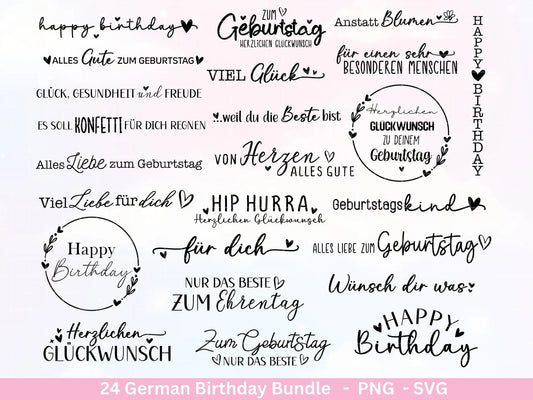 happy birthday
ZUM
Geburtstag
HERZLICHEN GLÜCKWUNSCH
Anstatt Blumen
HAPPY BIRTHDAY
ALLES Gute ZUM GEBURTSTAG
VIEL Glück
für einen sehr
BESONDEREN MENSCHEN
GLÜCK, GESUNDHEIT und FREUDE
ES SOLL KONFETTI FÜR DICH REGNEN
...weil du die Beste bist
Herzlichen
GLÜCKWUNSCH
ZU DEINEM
Geburtstag
Alles Liebe zum Geburtstag
VON Herzen
ALLES GUTE
Viel Liebe für dich
HIP HURRA
Herzlichen Glückwunsch
Geburtstagskind
Happy
Birthday
für dich
ALLES LIEBE ZUM Geburtstag
NUR DAS BESTE
ZUM Ehrentag
Wünsch dir was
Herzlichen
GLÜCKWUNSCH
Zum Geburtstag
NUR DAS BESTE
HAPPY
Birthday
24 German Birthday Bundle - PNG - SVG